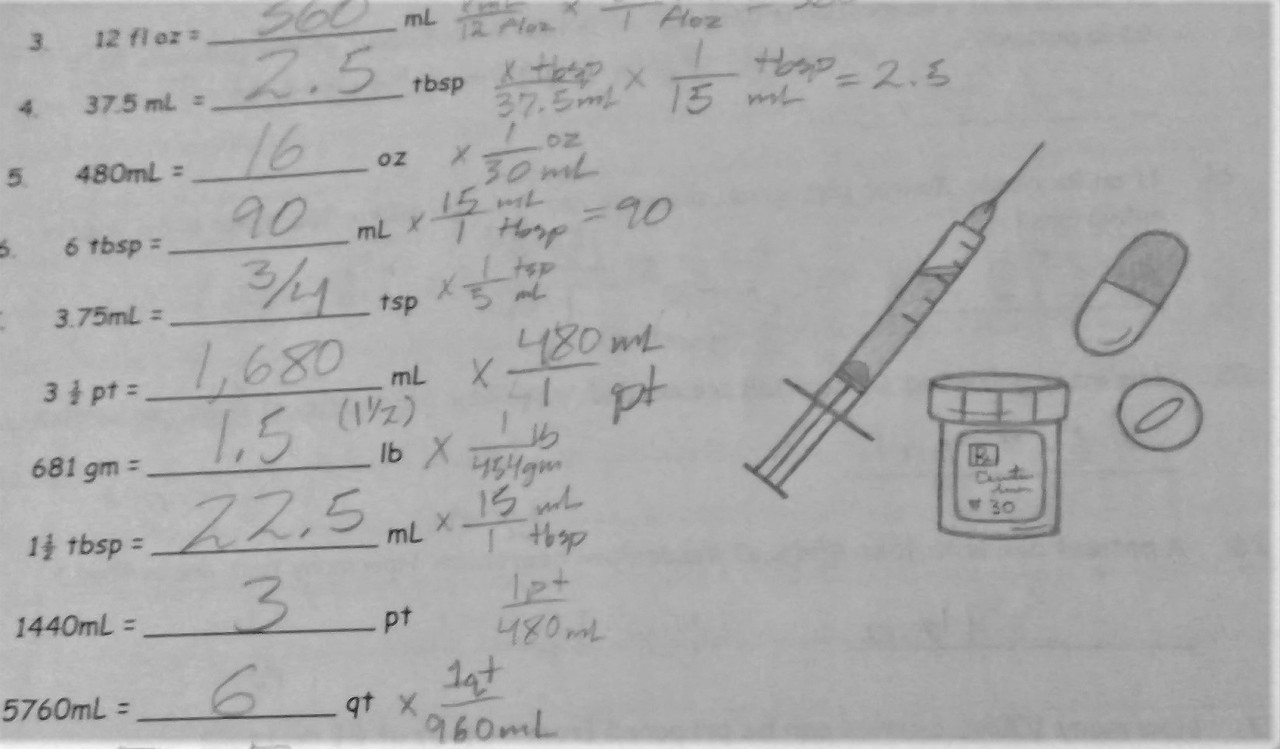 3. 12 fl oz = 360 mL
4. 37.5 mL = 2.5 tbsp x tbsp/37.5mL × 1/15 tbsp/mL = 2.5
5. 480mL = 16 oz × 1/30 oz/mL
6 tbsp = 90 mL × 15/1 mL/tbsp = 90
3.75mL = 3/4 tsp × 1/5 tsp/mL
3 ½ pt = 1,680 mL × 480/1 mL/pt
681 gm = 1.5 (1½) lb × 1 lb/454gm
1½ tbsp = 22.5 mL × 15/1 mL/tbsp
1440mL = 3 pt 1pt/480mL
5760mL = 6 qt × 1qt/960mL
Rx
30